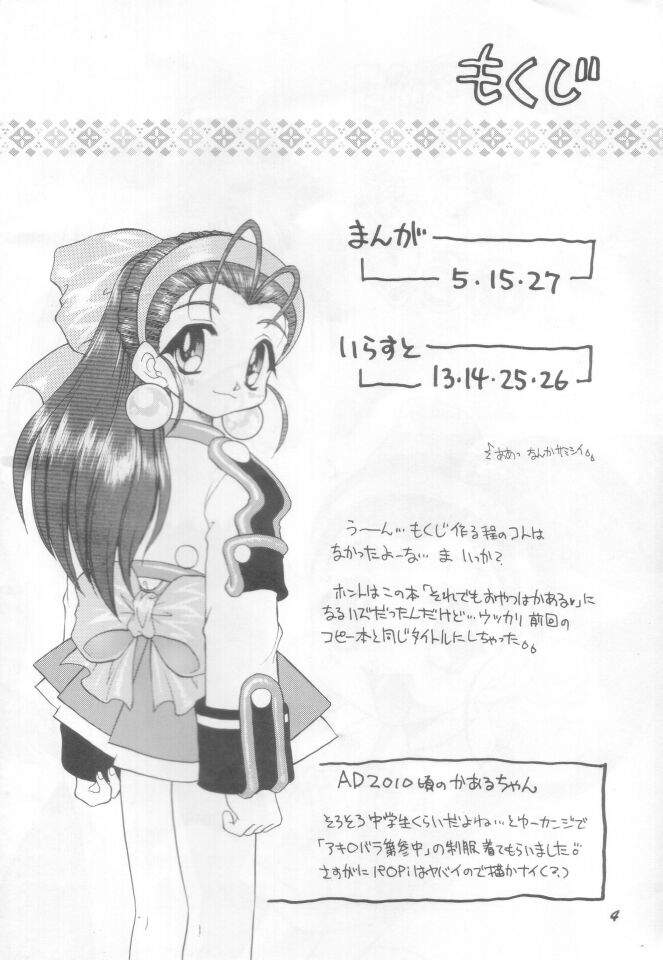 もくじ
まんが
5・15・27
いらすと
13・14・25・26
なんかサミシイ
うーん…もくじ作る程のコトは
なかったよーな… ま いっか?
ホントはこの本「それでもおやつはかある♥」に
なるハズだったんだけど…ウッカリ前回の
コピー本と同じタイトルにしちゃった
AD2010頃のかあるちゃん
そろそろ中学生くらいだよね…とゆーカンジで
「アキロバラ第参中」の制服着てもらいました
さすがにPOPiはヤバイので描かナイ(?)
4